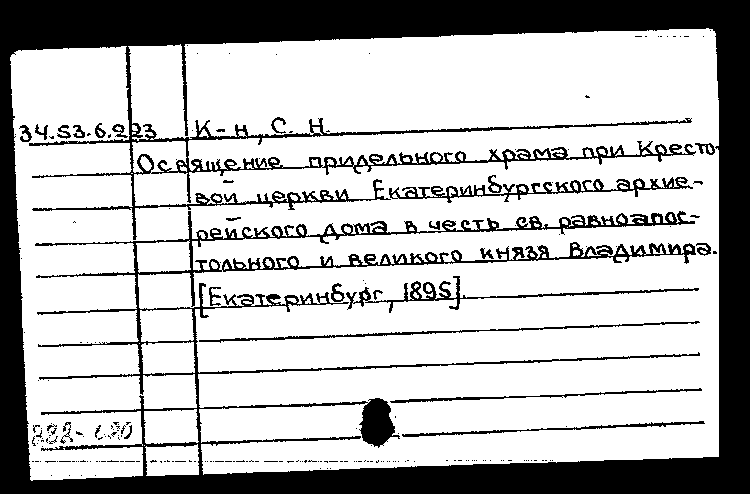 34.53.6.223 К-н, С. Н.
Освящение придельного храма при Кресто-
вой церкви Екатеринбургского архие-
рейского дома в честь св. равноапос-
тольного и великого князя Владимира.
[Екатеринбург, 1895].